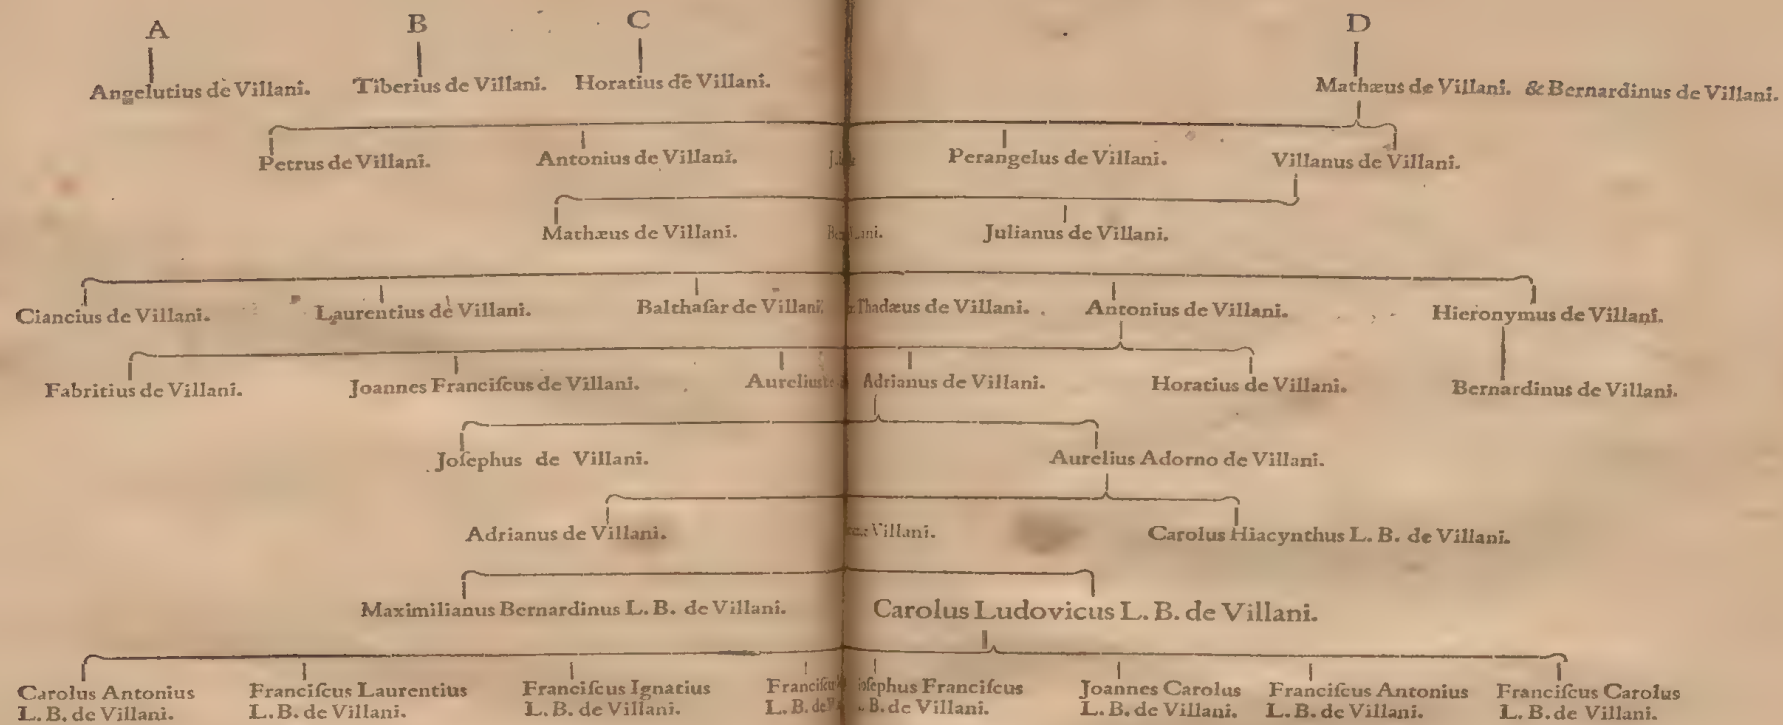 A B C D
Angelutius de Villani. Tiberius de Villani. Horatius de Villani. Mathæus de Villani. & Bernardinus de Villani.
Petrus de Villani. Antonius de Villani. Perangelus de Villani. Villanus de Villani.
Mathæus de Villani. Julianus de Villani.
Ciancius de Villani. Laurentius de Villani. Balthaſar de Villani. Thadæus de Villani. Antonius de Villani. Hieronymus de Villani.
Fabritius de Villani. Joannes Franciſcus de Villani. Aurelius Adrianus de Villani. Horatius de Villani. Bernardinus de Villani.
Joſephus de Villani. Aurelius Adorno de Villani.
Adrianus de Villani. Villani. Carolus Hiacynthus L. B. de Villani.
Maximilianus Bernardinus L. B. de Villani. Carolus Ludovicus L. B. de Villani.
Carolus Antonius Franciſcus Laurentius Franciſcus Ignatius Joſephus Franciſcus Joannes Carolus Franciſcus Antonius Franciſcus Carolus
L. B. de Villani. L. B. de Villani. L. B. de Villani. L. B. de B. de Villani. L. B. de Villani. L. B. de Villani. L. B. de Villani.